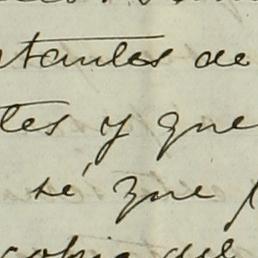 tantes de
tes y que
sé que
copia del